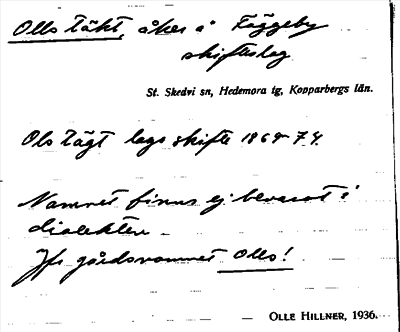 Olls täkt, åker å Fäggeby
skifteslag
St. Skedvi sn, Hedemora tg, Kopparbergs län.
Ols tägt laga skifte 1869-74.
Namnet finns ej bevarat i
dialekten
Jfr gårdsnamnet Olls!
OLLE HILLNER, 1936.